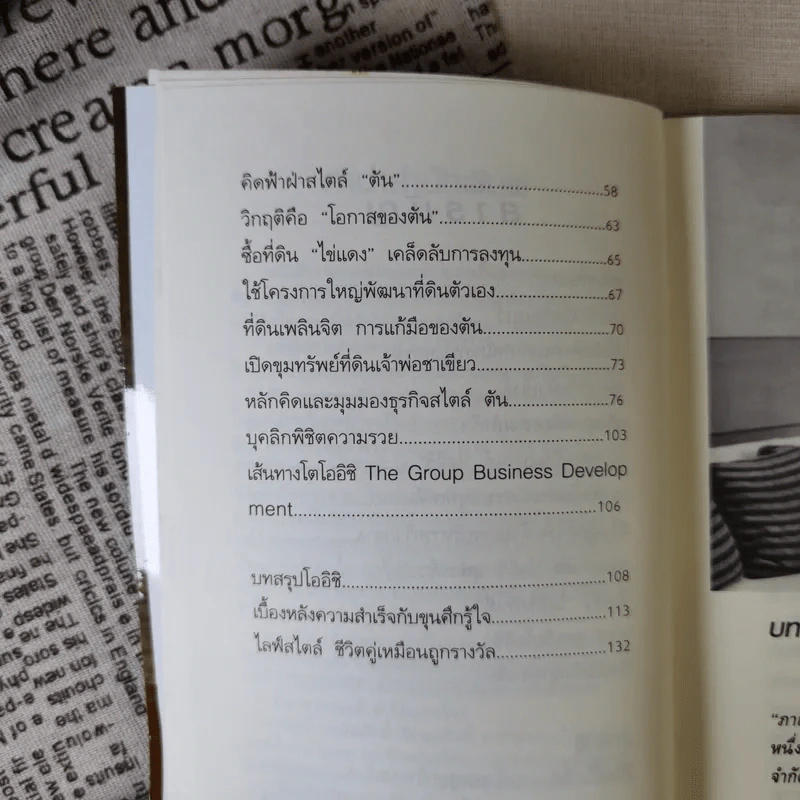 คิดฟ้าฝ่าสไตล์ “ตัน”................................58
วิกฤติคือ “โอกาสของตัน”................................63
ซื้อที่ดิน “ไข่แดง” เคล็ดลับการลงทุน................65
ใช้โครงการใหญ่พัฒนาที่ดินตัวเอง....................67
ที่ดินเพลินจิต การแก้มือของตัน......................70
เปิดขุมทรัพย์ที่ดินเจ้าพ่อชาเขียว......................73
หลักคิดและมุมมองธุรกิจสไตล์ ตัน...................76
บุคลิกพิชิตความรวย................................103
เส้นทางโตโออิชิ The Group Business Develop
ment................................................106
บทสรุปโออิชิ........................................108
เบื้องหลังความสำเร็จกับขุนศึกรู้ใจ..................113
ไลฟ์สไตล์ ชีวิตคู่เหมือนถูกรางวัล....................132
here and
creat morg
erful
another
version of
robbers.
However the
safely and ship's
group Den Norske Verite
to a long list of measure his sordid
helped
includes metal d widespeadprais e in
The new column
came Slates but cricics in England
“ภา
หนึ่ง
จำกัด